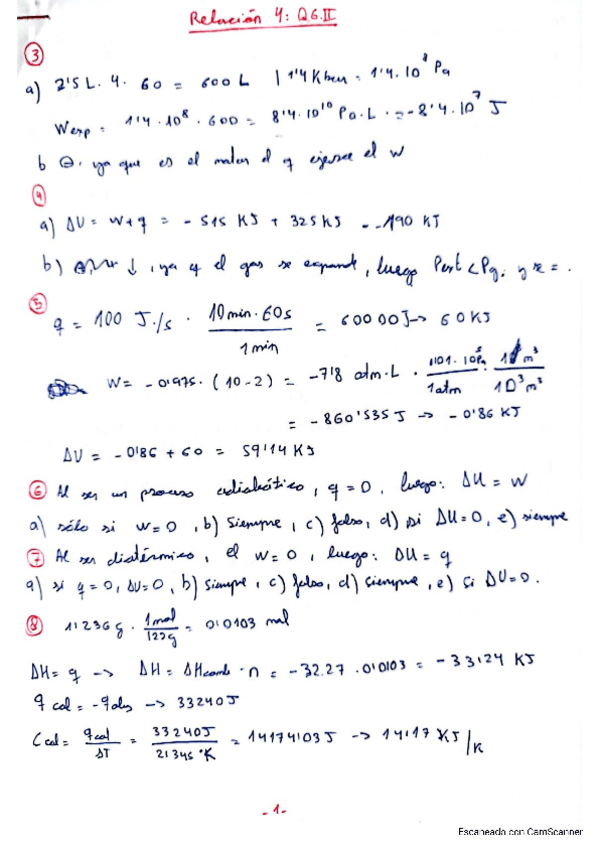 Relación 4: QG.II
③
a) 2'5 L. 4. 60 = 600 L | 1'4 Kbar = 1'4.10⁸ Pa
Wexp = 1'4.10⁸.600 = 8'4.10¹⁰ Pa.L = -8'4.10⁷ J
b ⊖, ya que es el motor el q ejerce el W
④
a) ΔU = W+q = -515 KJ + 325 KJ = -190 KJ
b) ↓, ya q el gas se expande, luego Pext < Pg.
⑤
q = 100 J/s · 10min·60s / 1min = 60000J → 60KJ
W = -0'975.(10-2) = -7'8 atm·L · 1'101.10⁵Pa / 1atm · 1 m³ / 10³m³
= -860'535 J → -0'86 KJ
ΔU = -0'86 + 60 = 59'14 KJ
⑥ Al ser un proceso adiabático, q=0, luego: ΔU = W
a) sólo si W=0, b) Siempre, c) falso, d) si ΔU=0, e) siempre
⑦ Al ser diatérmico, el W=0, luego: ΔU = q
a) si q=0, ΔU=0, b) siempre, c) falso, d) siempre, e) si ΔU=0.
⑧ 1'236 g · 1mol / 122g = 0'0103 mol
ΔH = q → ΔH = ΔHcomb · n = -3227 · 0'0103 = -33'24 KJ
q cal = -q des → 33240J
Ccal = qcal / ΔT = 33240J / 2'345 °K = 14174'03J → 14'17 KJ/K
-1-
Escaneado con CamScanner